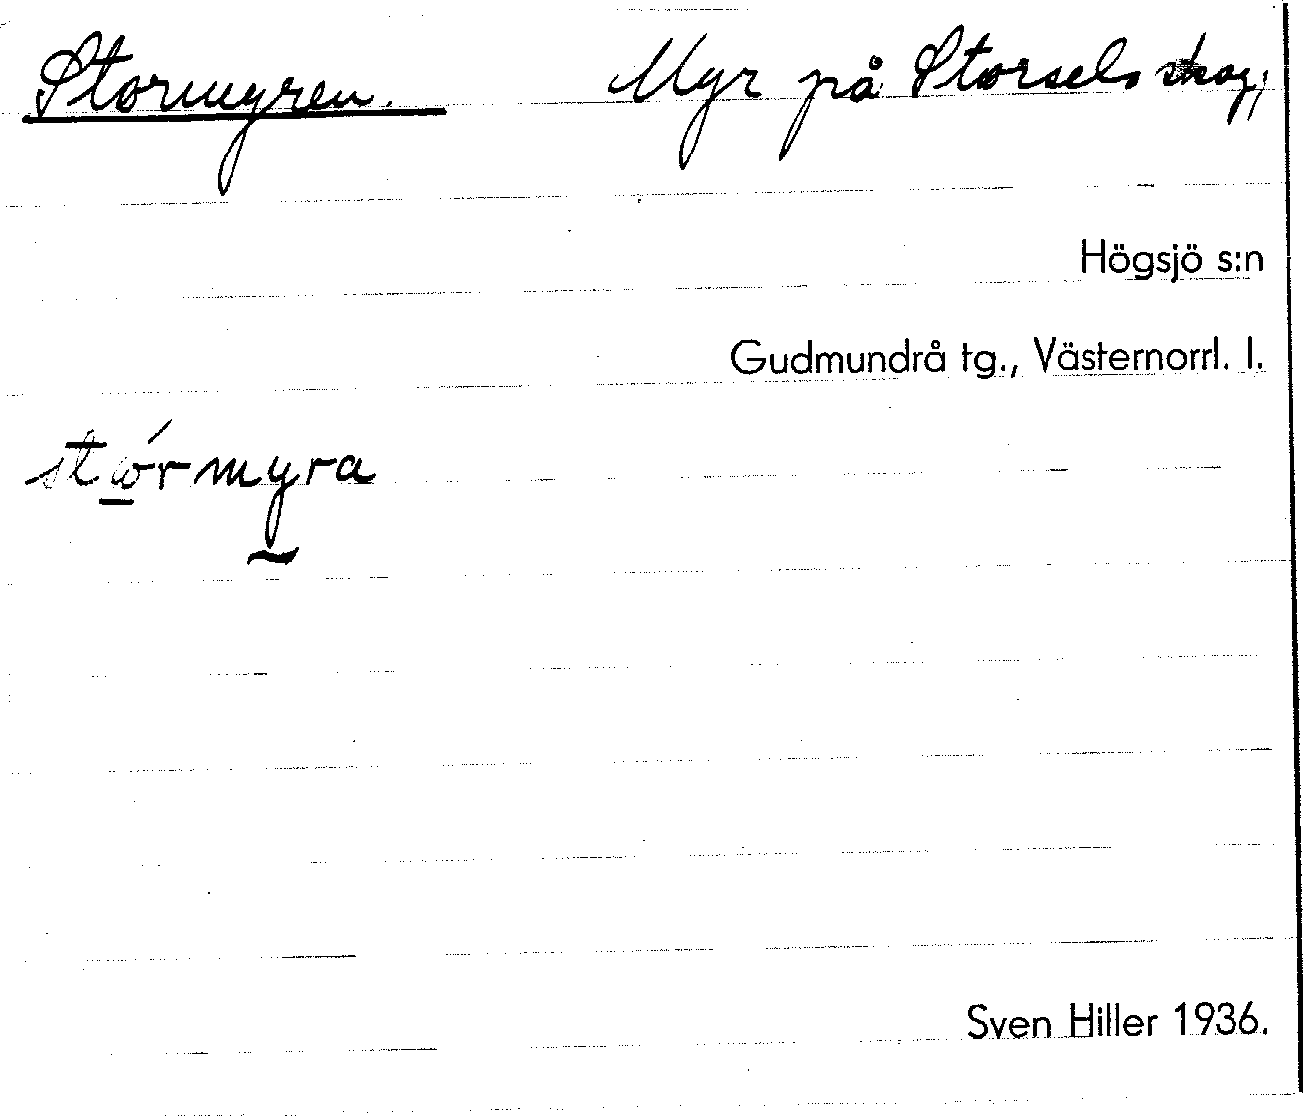 Stormyren. Myr på Storsels skog,
Högsjö s:n
Gudmundrå tg., Västernorrl. l.
stώ̲rmy̰ra
Sven Hiller 1936.